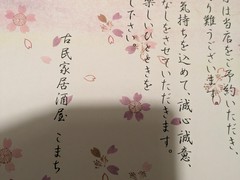 は当店をご予約いただき、
り難うございます。
気持ちを込めて、誠心誠意、
なしをさせていただきます。
楽しいひとときを
下さい。
古民家居酒屋 こまち